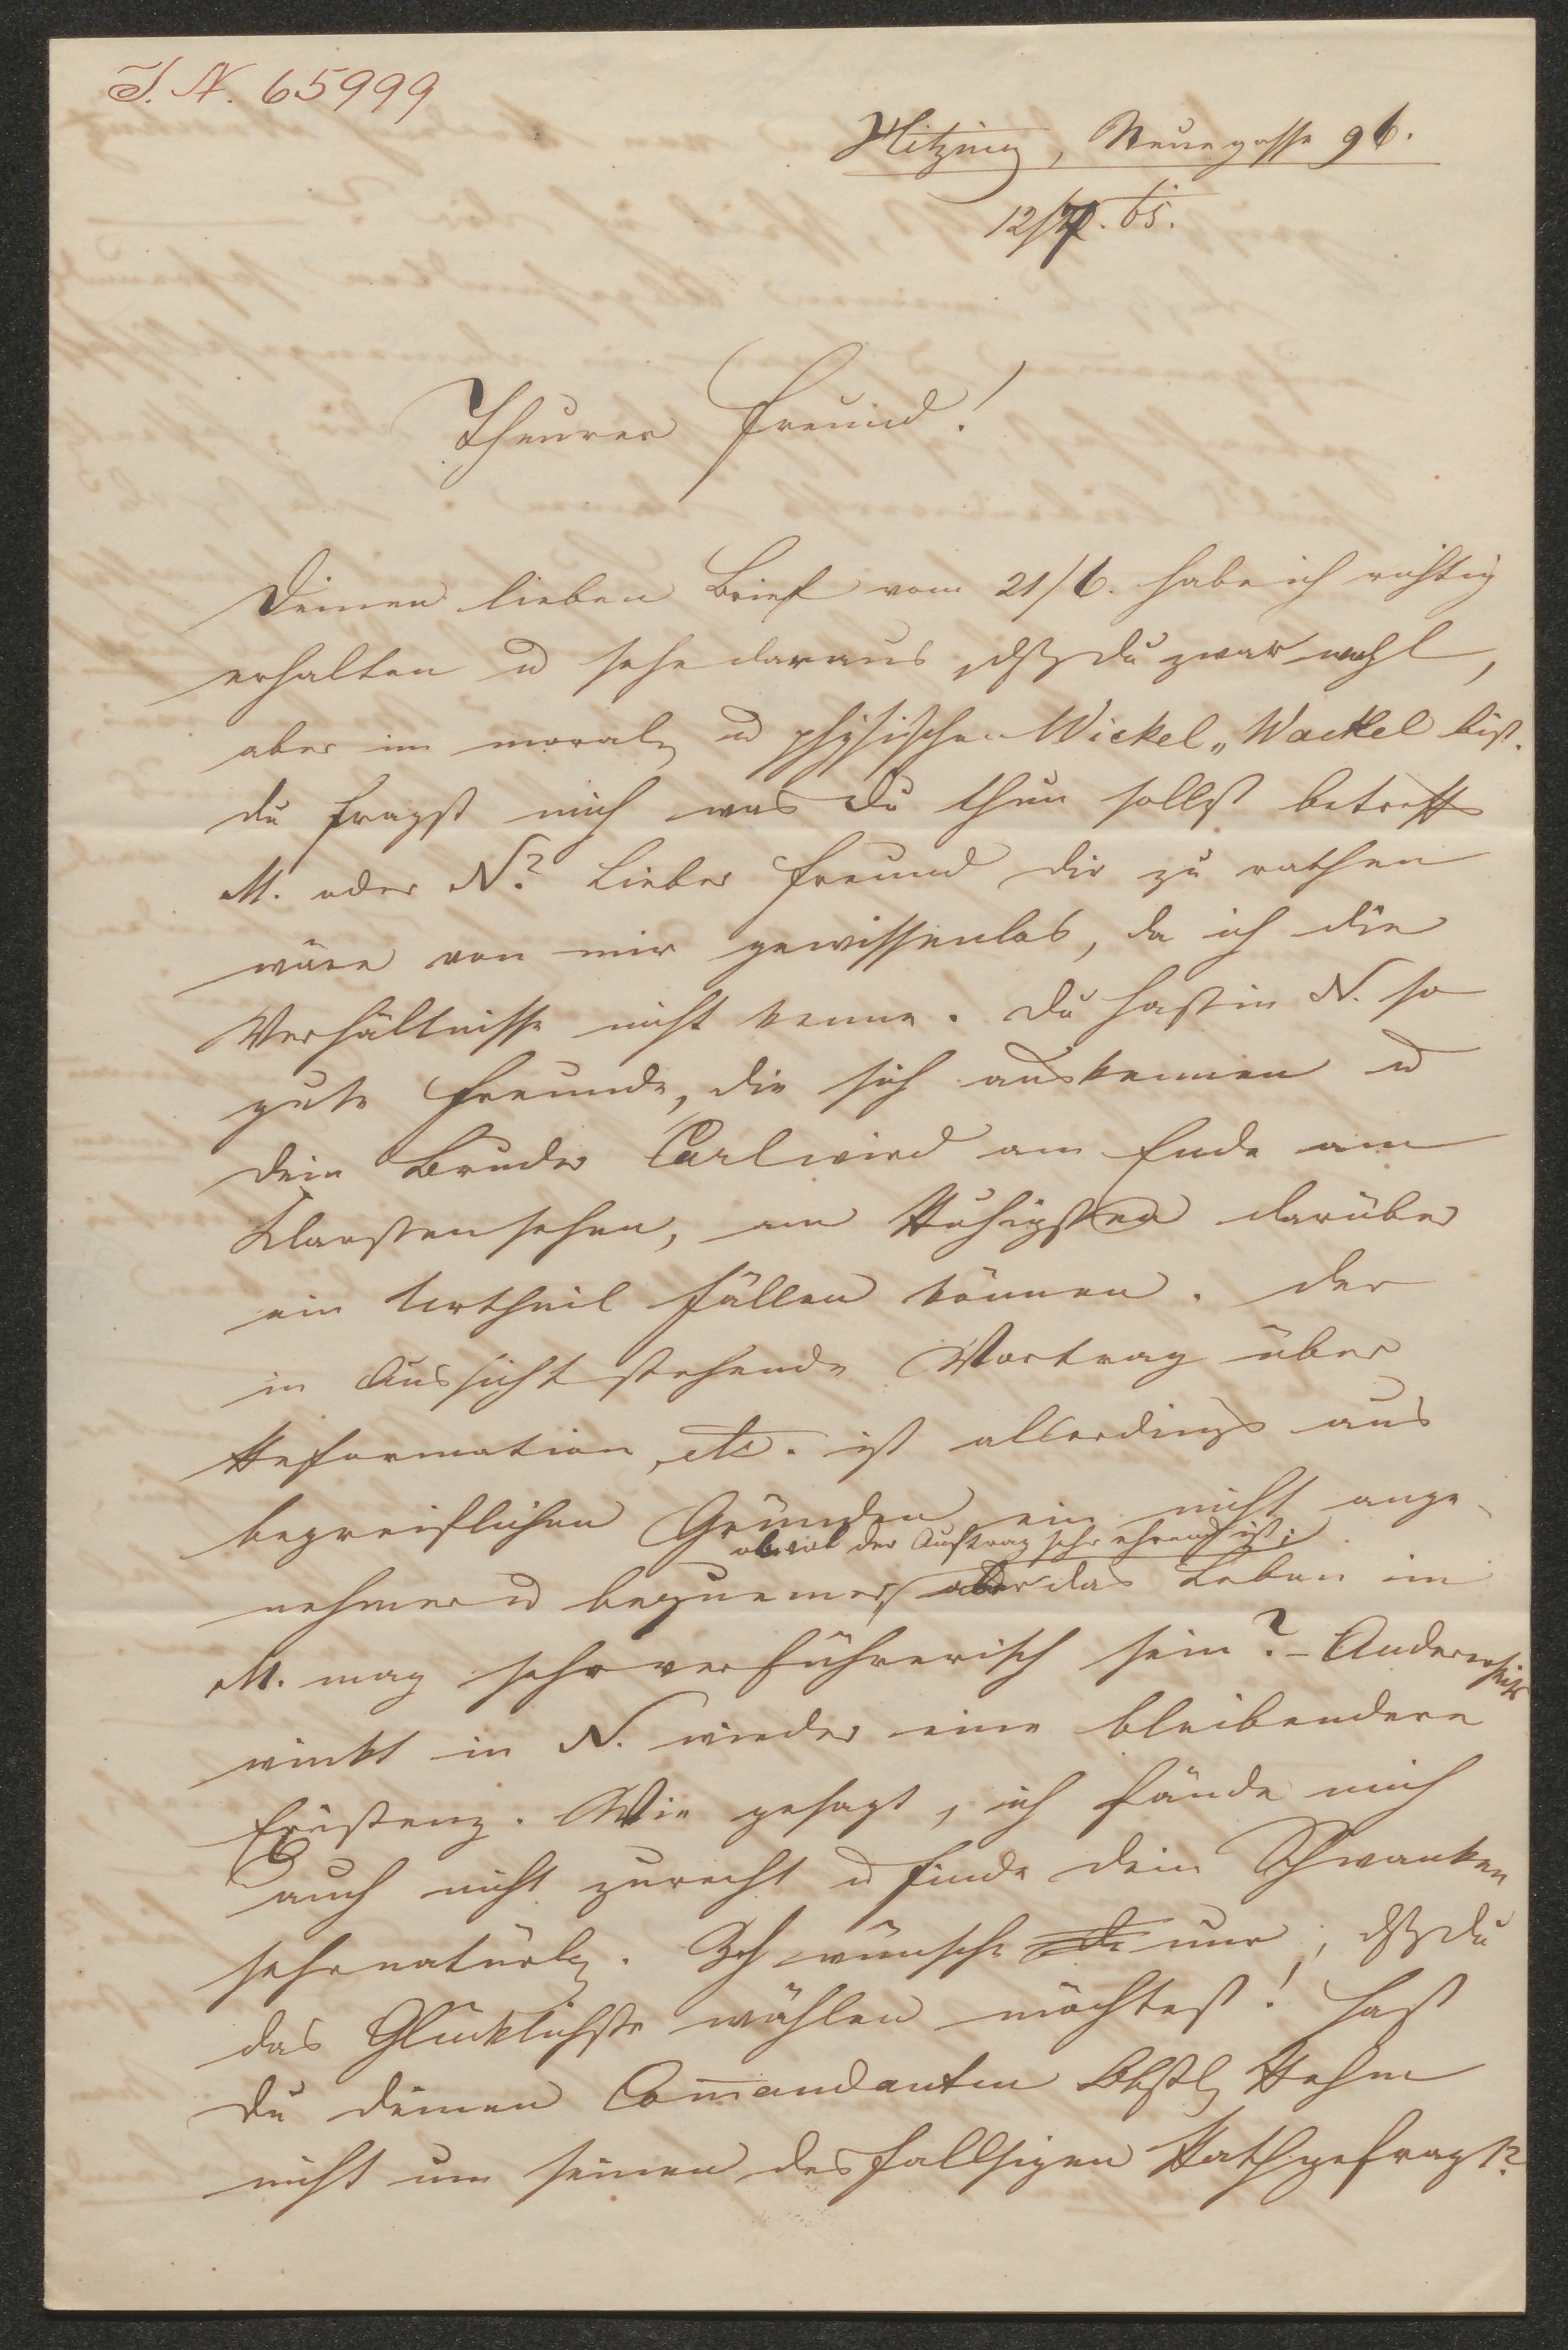 I. N. 65999
Hitzing, Neuegasse 96.
12/7. 65.
Theurer Freund!
Deinen lieben Brief vom 21/6. habe ich richtig
erhalten u sehe daraus, dß du zwar wohl,
aber im moral u physischen Wickel„Wackel bist.
du fragst mich was du thun sollst betreffs
M. oder N? Lieber Freund dir zu rathen
wäre von mir gewissenlos, da ich die
Verhältnisse nicht kenne. du hast in N. so
gute Freunde, die sich auskennen u
dein Bruder Carl wird am Ende am
Klarsten sehen, am Ruhigsten darüber
ein Urtheil fällen können. der
in Aussicht stehende Vortrag über
Reformation etc. ist allerdings aus
begreiflichen Gründen ein nicht ange-
obwol der Auftrag sehr ehrend ist;
nehmer u bequemer, aber das Leben in
M. mag sehr verführerisch sein? - Andererseits
winkt in N. wieder eine bleibendere
Existenz. Wie gesagt, ich fände mich
auch nicht zurecht u finde dein Schwanken
sehr natürl. Ich wünsche nur, dß du
das Glücklichste wählen möchtest! hast
du deinen Comandanten Obstl Rehm
nicht um seinen desfallsigen Rath gefragt?